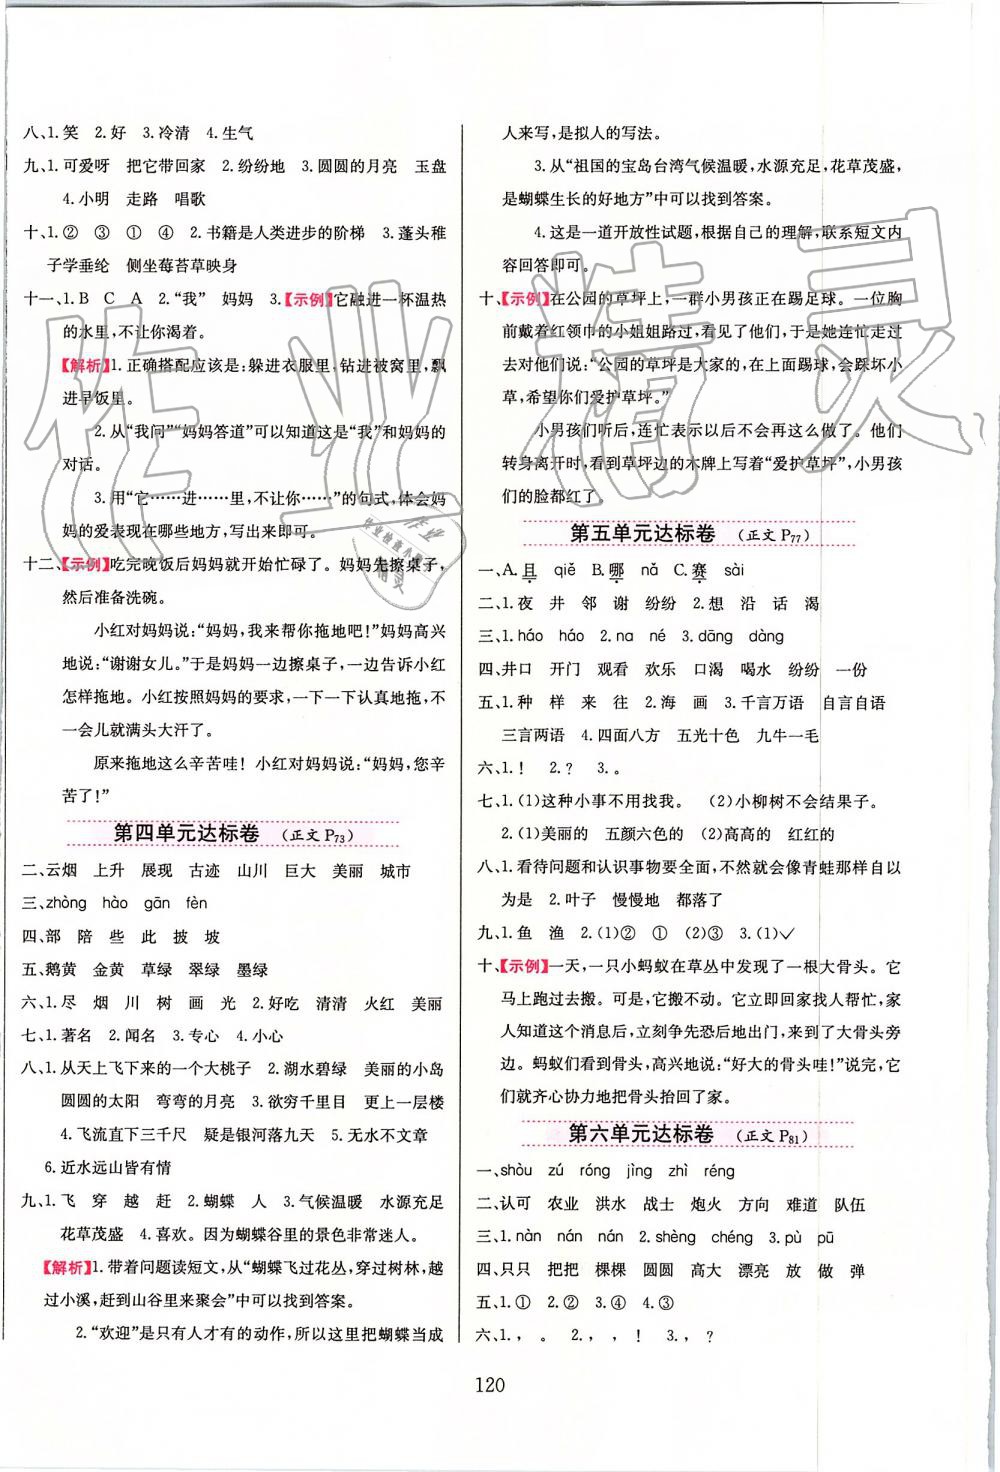 八、1.笑 2.好 3.冷清 4.生气
九、1.可爱呀 把它带回家 2.纷纷地 3.圆圆的月亮 玉盘
4.小明 走路 唱歌
十、1.② ③ ① ④ 2.书籍是人类进步的阶梯 3.蓬头稚
子学垂纶 侧坐莓苔草映身
十一、1.B C A 2.“我” 妈妈 3.【示例】它融进一杯温热
的水里,不让你渴着。
【解析】1.正确搭配应该是:躲进衣服里,钻进被窝里,飘
进早饭里。
2.从“我问”“妈妈答道”可以知道这是“我”和妈妈的
对话。
3.用“它……进……里,不让你……”的句式,体会妈
妈的爱表现在哪些地方,写出来即可。
十二、【示例】吃完晚饭后妈妈就开始忙碌了。妈妈先擦桌子,
然后准备洗碗。
小红对妈妈说:“妈妈,我来帮你拖地吧!”妈妈高兴
地说:“谢谢女儿。”于是妈妈一边擦桌子,一边告诉小红
怎样拖地。小红按照妈妈的要求,一下一下认真地拖,不
一会儿就满头大汗了。
原来拖地这么辛苦哇! 小红对妈妈说:“妈妈,您辛
苦了!”
第四单元达标卷 (正文P73)
二、云烟 上升 展现 古迹 山川 巨大 美丽 城市
三、zhòng hào gān fèn
四、部 陪 些 此 披 坡
五、鹅黄 金黄 草绿 翠绿 墨绿
六、1.尽 烟 川 树 画 光 2.好吃 清清 火红 美丽
七、1.著名 2.闻名 3.专心 4.小心
八、1.从天上飞下来的一个大桃子 2.湖水碧绿 美丽的小岛
圆圆的太阳 弯弯的月亮 3.欲穷千里目 更上一层楼
4.飞流直下三千尺 疑是银河落九天 5.无水不文章
6.近水远山皆有情
九、1.飞 穿 越 赶 2.蝴蝶 人 3.气候温暖 水源充足
花草茂盛 4.喜欢。因为蝴蝶谷里的景色非常迷人。
【解析】1.带着问题读短文,从“蝴蝶飞过花丛,穿过树林,越
过小溪,赶到山谷里来聚会”中可以找到答案。
2.“欢迎”是只有人才有的动作,所以这里把蝴蝶当成
人来写,是拟人的写法。
3.从“祖国的宝岛台湾气候温暖,水源充足,花草茂盛,
是蝴蝶生长的好地方”中可以找到答案。
4.这是一道开放性试题,根据自己的理解,联系短文内
容回答即可。
十、【示例】在公园的草坪上,一群小男孩正在踢足球。一位胸
前戴着红领巾的小姐姐路过,看见了他们,于是她连忙走过
去对他们说:“公园的草坪是大家的,在上面踢球,会踩坏小
草,希望你们爱护草坪。”
小男孩们听后,连忙表示以后不会再这么做了。他们
转身离开时,看到草坪边的木牌上写着“爱护草坪”,小男孩
们的脸都红了。
第五单元达标卷 (正文P77)
一、A.且 qiě B.哪 nǎ C.赛 sài
二、1.夜 井 邻 谢 纷纷 2.想 沿 话 渴
三、1.háo háo 2.na né 3.dāng dàng
四、井口 开门 观看 欢乐 口渴 喝水 纷纷 一份
五、1.种 样 来 往 2.海 画 3.千言万语 自言自语
三言两语 4.四面八方 五光十色 九牛一毛
六、1.! 2.? 3.。
七、1.(1)这种小事不用找我。 (2)小柳树不会结果子。
2.(1)美丽的 五颜六色的 (2)高高的 红红的
八、1.看待问题和认识事物要全面,不然就会像青蛙那样自以
为是 2.叶子 慢慢地 都落了
九、1.鱼 渔 2.(1)② ① (2)③ 3.(1)✓
十、【示例】一天,一只小蚂蚁在草丛中发现了一根大骨头。它
马上跑过去搬。可是,它搬不动。它立即回家找人帮忙,家
人知道这个消息后,立刻争先恐后地出门,来到了大骨头旁
边。蚂蚁们看到骨头,高兴地说:“好大的骨头哇!”说完,它
们就齐心协力地把骨头抬回了家。
第六单元达标卷 (正文P81)
一、shòu zú róng jìng zhì réng
二、认可 农业 洪水 战士 炮火 方向 难道 队伍
三、1.nàn nán nán 2.shèng chéng 3.pù pū
四、只只 把把 棵棵 圆圆 高大 漂亮 放 做 弹
五、1.① 2.② 3.④ 4.③
六、1., 。 2., , ! 3., ?
120
作业精灵